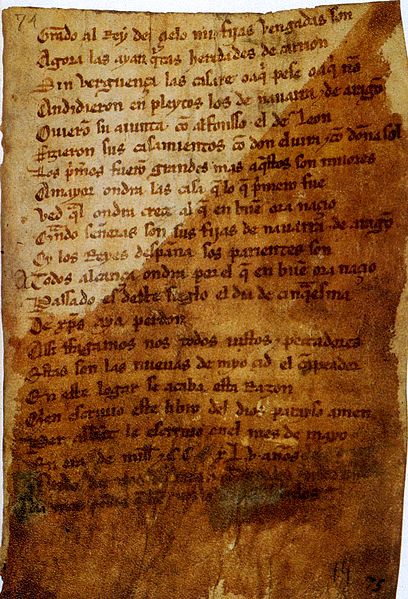 74
Grado al Rey del çielo mis fijas vengadas son
Agora las ayan q̃tas heredades de carrion
Sin verguença las casare o aq̃ pese o aq̃ nõ
Andidieron eñ pleytos los de nauarra ⁊ de aragõ
Ouierõ su aiunta cõ alfonsso el de Leon
Fizieron sus casamientos cõ don eluira ⁊ cõ doña sol
Los p̃meros fuerõ grandes mas aq̃stos son miiores
A mayor ondra las casa q̃ lo q̃ p̃mero fue
Ved q̃l ondra creçe al q̃ en buẽ ora naçio
Quãdo señoras son sus fijas de nauarra ⁊ de aragõ
Oy los Reyes despaña sos parientes son
A Todos alcança ondra por el q̃ en buẽ ora naçio
Passado es deste sieglo el dia de cinq̃esma
De xp̃s aya perdon
Assi ffagamos nos todos iustos ⁊ peccadores
Estas son las nueuas de myo çid el cãpeador
En este logar se acaba esta Razon
Quien escriuio este libro del dios parayso amen
Per abbat le escriuio enel mes de mayo
En era de mill ⁊ .C.C. xL.v. años
74
75